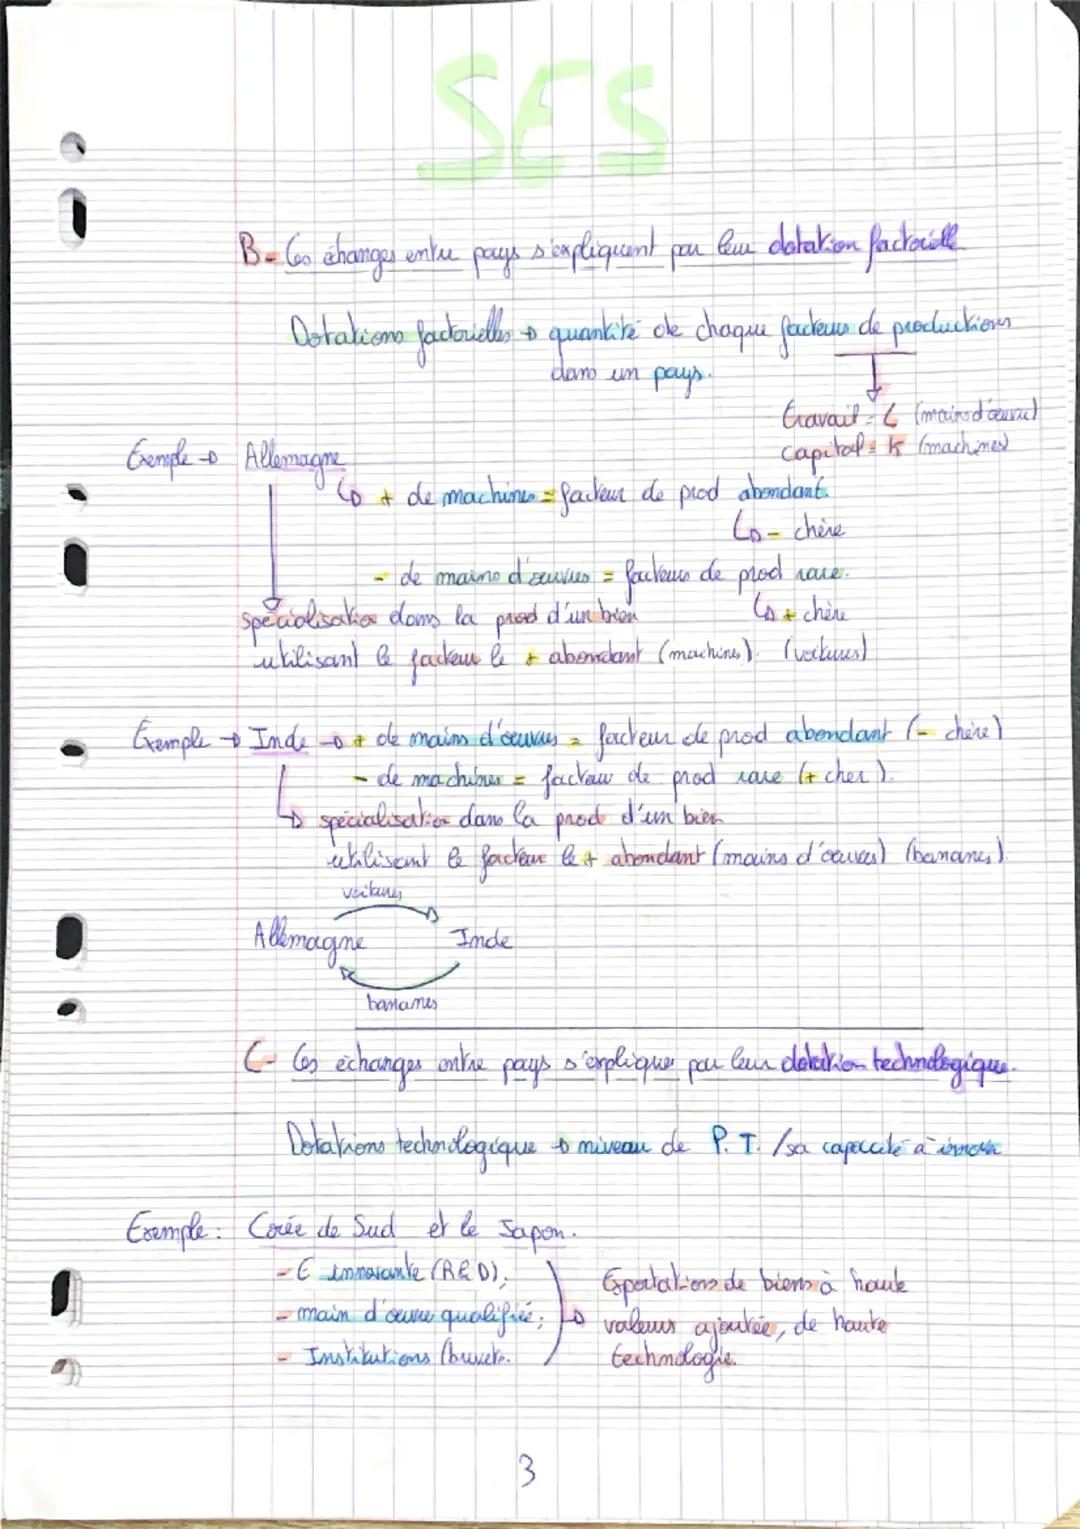 SES
B- Les échanges entre pays s'expliquent par leur dotation factorielle
Dotations factorielles → quantité de chaque facteurs de productions
dans un pays.
travail = L (mains d'œuvre)
capital = K (machines)
Exemple → Allemagne
↳ + de machines = facteur de prod abondant.
↳ - chère
- de mains d'œuvres = facteurs de prod rare.
↳ + chère
spécialisation dans la prod d'un bien
utilisant le facteur le + abondant (machines). (voitures)
Exemple → Inde → + de mains d'œuvres = facteur de prod abondant (- chère)
- de machines = facteur de prod rare (+ cher).
↳ spécialisation dans la prod d'un bien
utilisant le facteur le + abondant (mains d'œuvres) (bananes).
voitures
Allemagne Inde
bananes
C- Les échanges entre pays s'explique par leur dotation technologique.
Dotations technologique → niveau de P.T. /sa capacité à innover
Exemple : Corée de Sud et le Japon.
- E innovante (R&D);
- main d'œuvre qualifiée;
- Institutions (brevets.
→ Exportations de biens à haute
valeurs ajoutée, de haute
technologie.
3